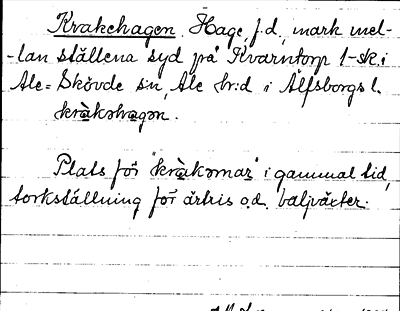 Krakehagen, Hage, f.d. mark mel-
-lan ställena syd på Kvarntorp 1-sk. i
Ale-Skövde sn, Ale hrd i Älfsborgs l.
kràkəhagən.
Plats för "kràkəmar" i gammal tid,
torkställning för ärtris o.d. baljväxter.